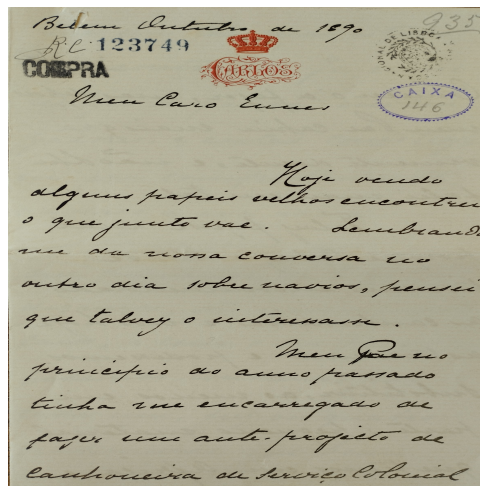 Belem Outubro de 1890
935
R.C. 123749
COMPRA
CARLOS
CAIXA
146
Meu Caro Ennes
Hoje vendo
alguns papeis velhos encontrei
o que junto vae. Lembrando
me da nossa conversa no
outro dia sobre navios, pensei
que talvez o interesasse.
Meu Pae no
principio do anno passado
tinha me encarregado de
fazer um ante-projecto de
canhoneira de serviço Colonial